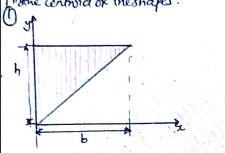 the centroid of the shapes.
①
y
h
b
x